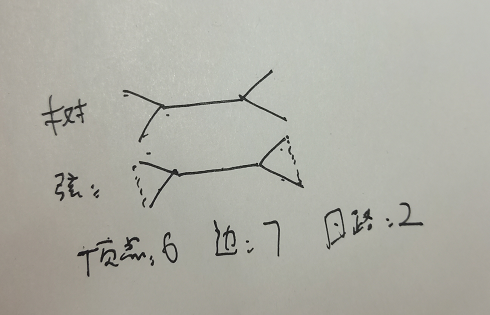 树
弦:
顶点:6 边:7 回路:2